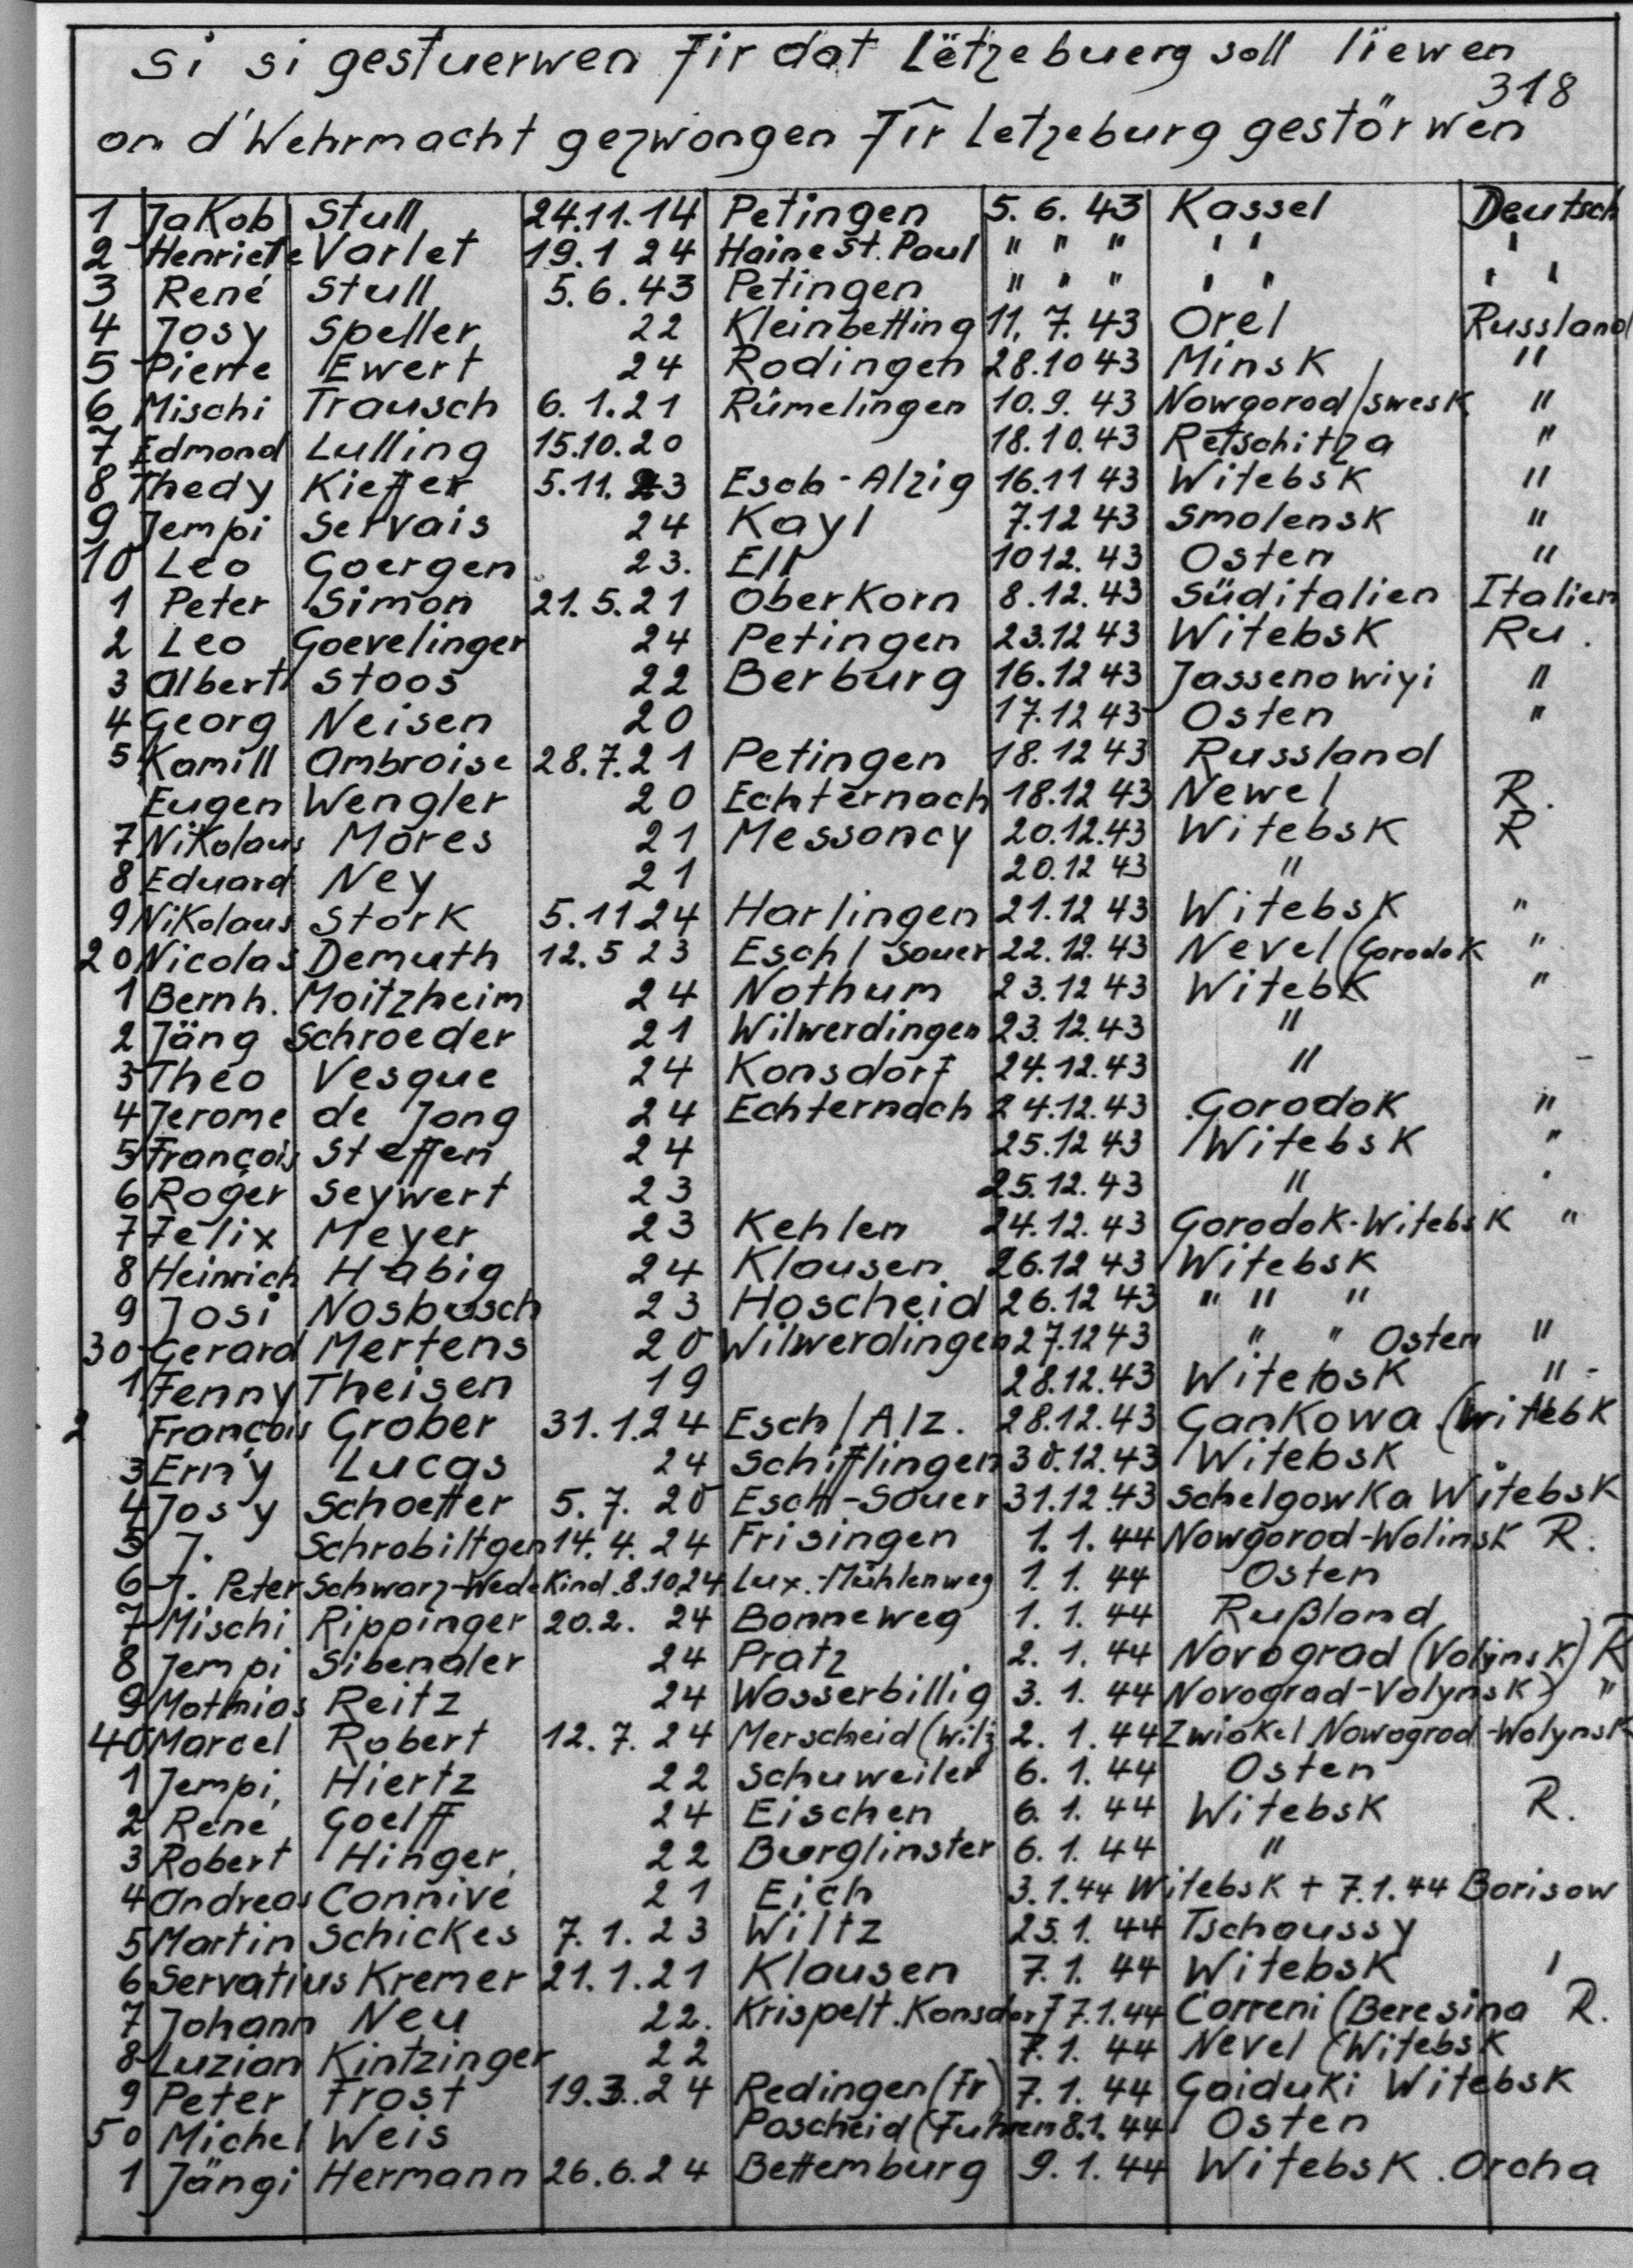 Si si gestuerwen fir dat Lëtzebuerg soll lïewen
318
on d'Wehrmacht gezwongen Fîr Letzeburg gestörwen
1 Jakob Stull 24.11.14 Petingen 5.6.43 Kassel Deutsch
2 Henriete Varlet 19.1 24 Haine St. Paul " " " " " "
3 René Stull 5.6.43 Petingen " " " " " " "
4 Josy Speller 22 Kleinbetting 11.7.43 Orel Russland
5 Pierre Ewert 24 Rodingen 28.10 43 Minsk "
6 Mischi Trausch 6.1.21 Rümelingen 10.9.43 Nowgorod/swesk "
7 Edmond Lulling 15.10.20 18.10.43 Retschitza "
8 Thedy Kieffer 5.11.23 Esch-Alzig 16.11 43 Witebsk "
9 Jempi Servais 24 Kayl 7.12 43 Smolensk "
10 Leo Goergen 23. Ell 10 12. 43 Osten "
1 Peter Simon 21.5.21 Oberkorn 8.12.43 Süditalien Italien
2 Leo Goevelinger 24 Petingen 23.12 43 Witebsk Ru.
3 Albert Stoos 22 Berburg 16.12 43 Jassenowiyi "
4 Georg Neisen 20 17.12 43 Osten "
5 Kamill Ambroise 28.7.21 Petingen 18.12 43 Russland
Eugen Wengler 20 Echternach 18.12 43 Newel R.
7 Nikolaus Mores 21 Messancy 20.12.43 Witebsk R
8 Eduard Ney 21 20.12 43 "
9 Nikolaus Stork 5.11 24 Harlingen 21.12 43 Witebsk "
20 Nicolas Demuth 12.5 23 Esch/Sauer 22.12.43 Nevel (Gorodok "
1 Bernh. Moitzheim 24 Nothum 23.12 43 Witebk "
2 Jäng Schroeder 21 Wilwerdingen 23.12.43 "
3 Theo Vesque 24 Konsdorf 24.12.43 " -
4 Jerome de Jong 24 Echternach 24.12.43 Gorodok "
5 François Steffen 24 25.12 43 Witebsk "
6 Roger Seywert 23 25.12.43 " "
7 Felix Meyer 23 Kehlen 24.12.43 Gorodok-Witebsk "
8 Heinrich Habig 24 Klausen 26.12 43 Witebsk
9 Josi Nosbusch 23 Hoscheid 26.12 43 " " "
30 Gerard Mertens 20 Wilwerdingen 27.12 43 " " Osten "
1 Fenny Theisen 19 28.12.43 Witebsk " -
2 François Grober 31.1.24 Esch/Alz. 28.12.43 Gankowa (Witebk
3 Erny Lucas 24 Schifflingen 30.12.43 Witebsk
4 Josy Schoetter 5.7.20 Esch-Sauer 31.12.43 Schelgowka Witebsk
5 J. Schrobiltgen 14.4.24 Frisingen 1.1.44 Nowgorod-Wolinsk R.
6 J. Peter Schwarz-Wedekind 8.10 24 Lux.-Mühlenweg 1.1.44 Osten
7 Mischi Rippinger 20.2.24 Bonneweg 1.1.44 Rußland
8 Jempi Sibenaler 24 Pratz 2.1.44 Novograd (Volynsk) R
9 Mathias Reitz 24 Wasserbillig 3.1.44 Novograd-Volynsk) "
40 Marcel Robert 12.7.24 Merscheid (Wilz 2.1.44 Zwiakel Nowograd-Wolynsk
1 Jempi Hiertz 22 Schuweiler 6.1.44 Osten
2 René Goelff 24 Eischen 6.1.44 Witebsk R.
3 Robert Hinger 22 Burglinster 6.1.44 "
4 Andreas Connivé 21 Eich 3.1.44 Witebsk + 7.1.44 Borisow
5 Martin Schickes 7.1.23 Wiltz 25.1.44 Tschaussy
6 Servatius Kremer 21.1.21 Klausen 7.1.44 Witebsk '
7 Johann Neu 22. Krispelt.Konsdorf 7.1.44 Correni (Beresina R.
8 Luzian Kintzinger 22 7.1.44 Nevel (Witebsk
9 Peter Frost 19.3.24 Redingen (Fr) 7.1.44 Gaiduki Witebsk
50 Michel Weis Poscheid (Fuhren 8.1.44 Osten
1 Jängi Hermann 26.6.24 Bettemburg 9.1.44 Witebsk.Orcha